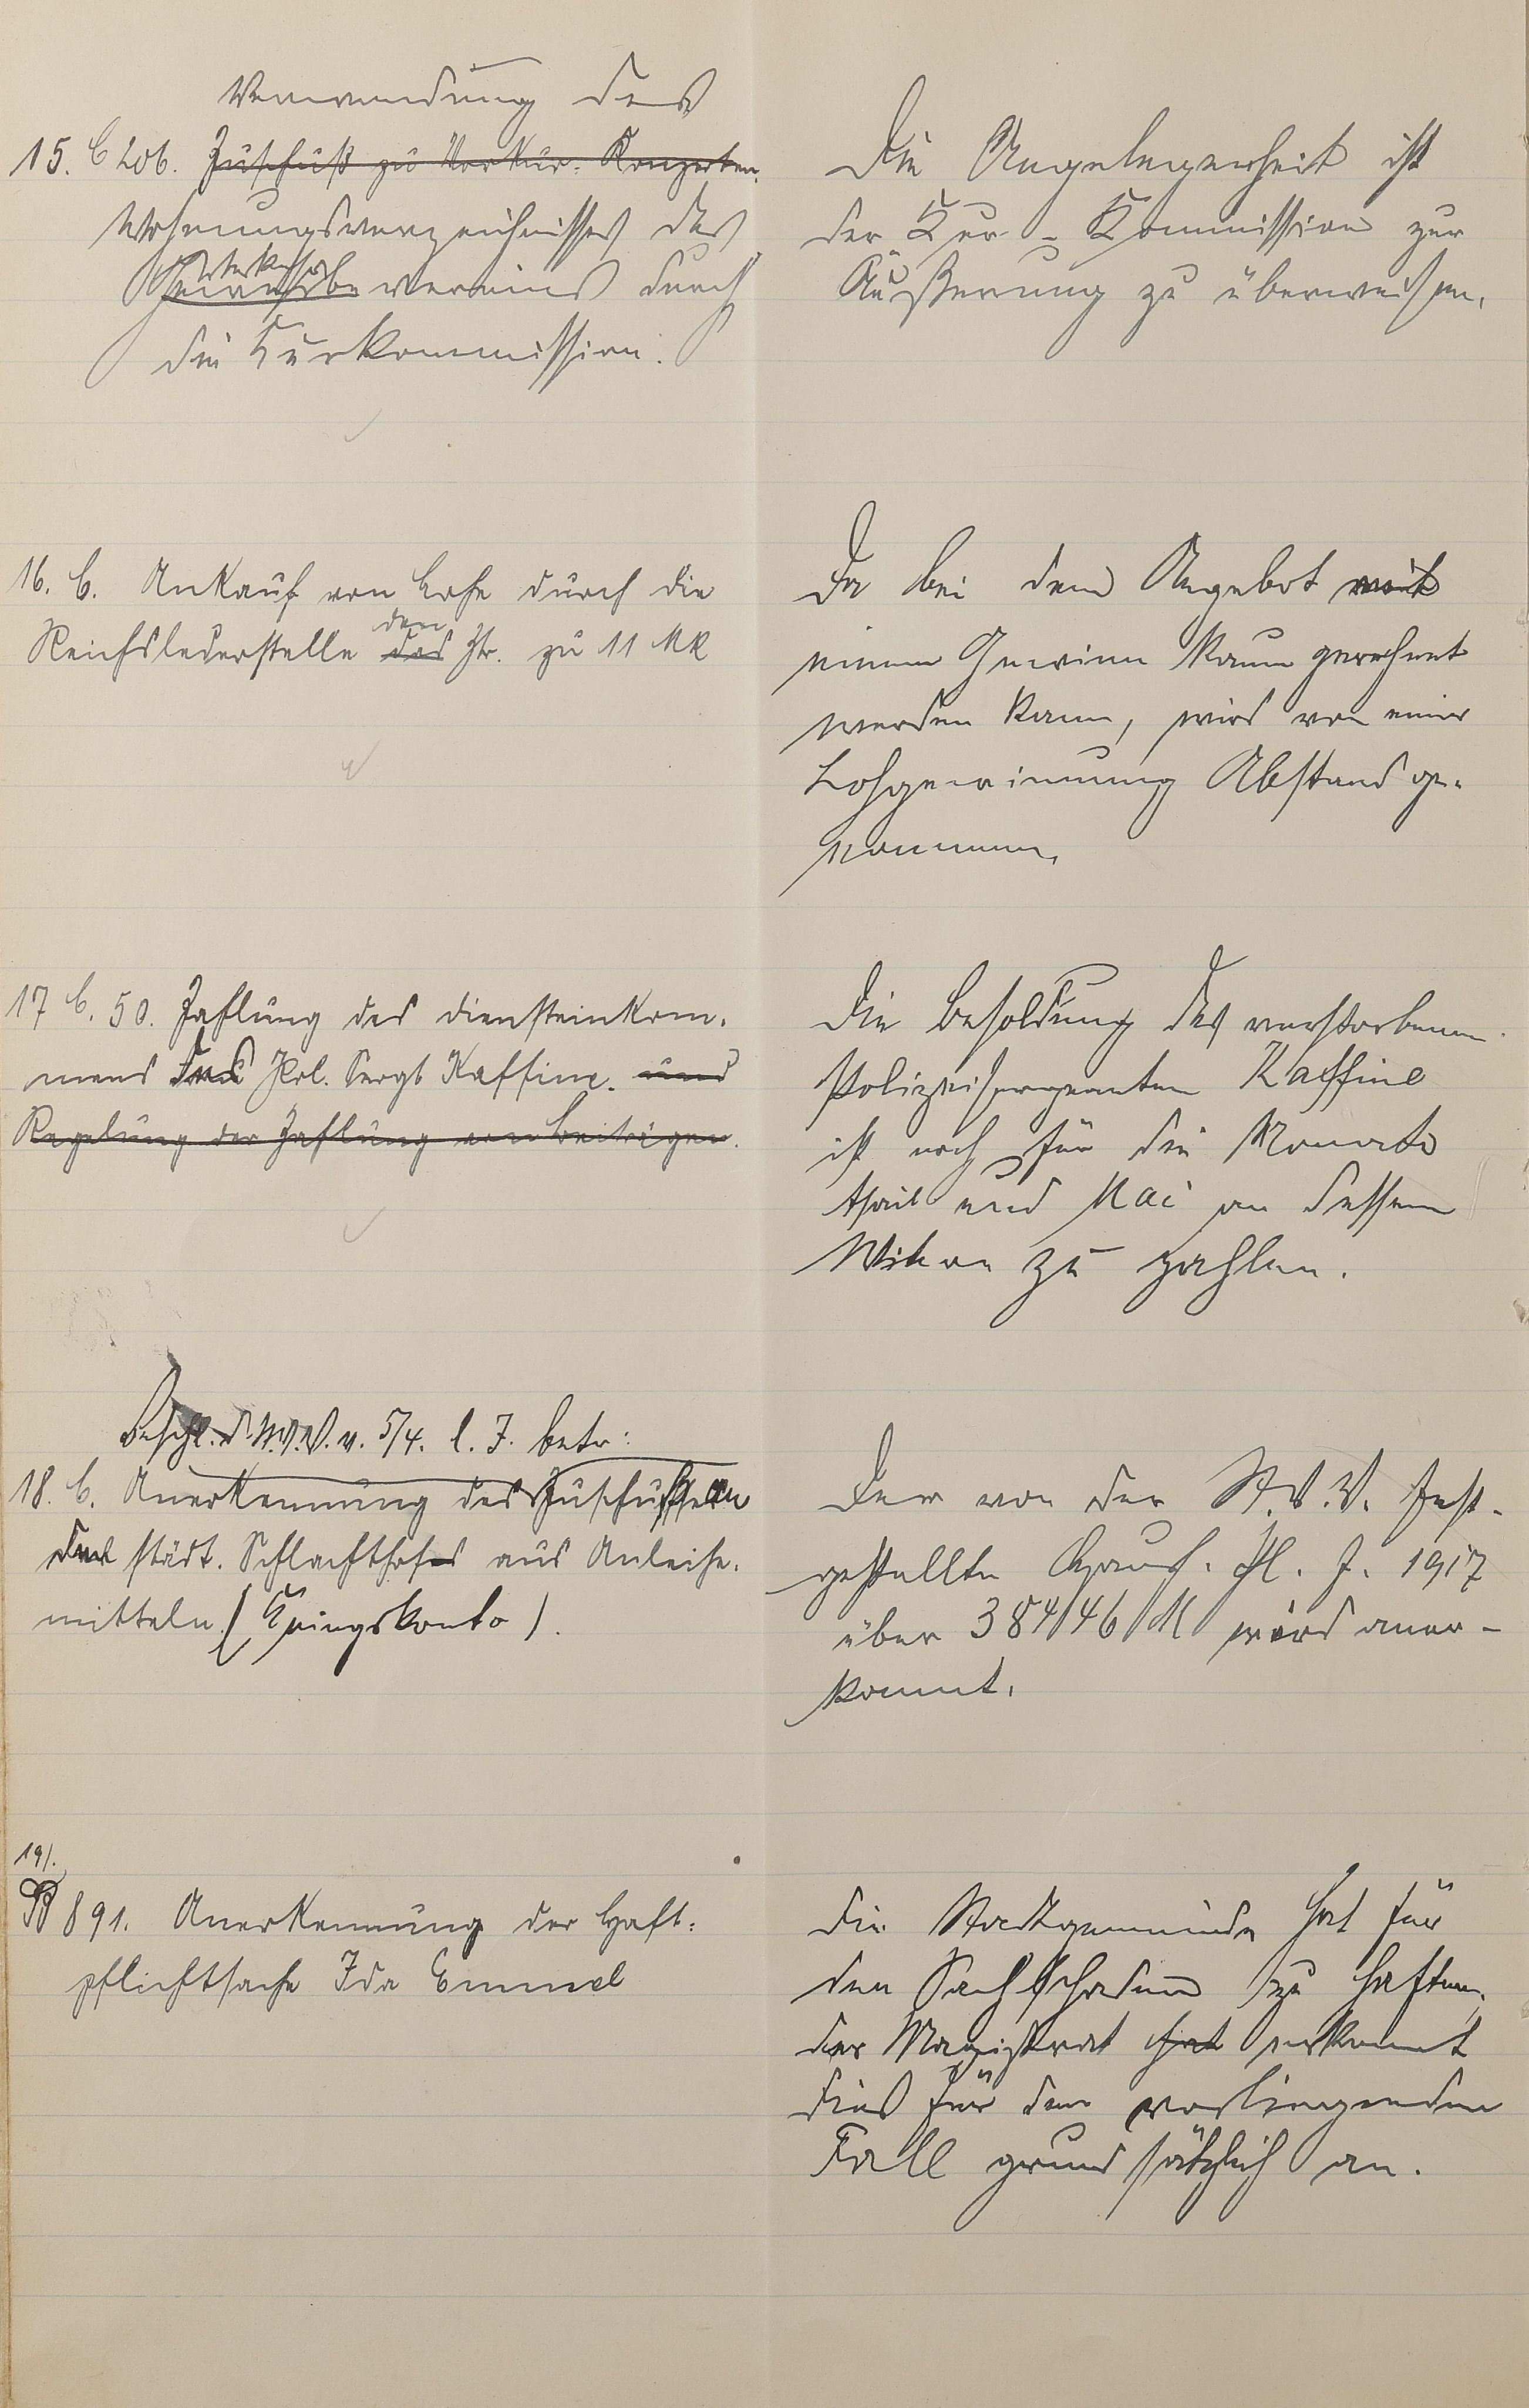 Verwendung des
15. C 206. Zuschuß zu Vorkur-Konzerten.
Wohnungsverzeichnisses des
Verkehrs
Gewerbevereins durch
die Kurkommission.
Die Angelegenheit ist
der Kur-Kommission zur
Äußerung zu überweisen.
16. C. Ankauf von Lohe durch die
den
Reichslederstelle das Ztr. zu 11 Mk
Da bei dem Angebot mit
einem Gewinn kaum gerechnet
werden kann, wird von einer
Lohgewinnung Abstand ge-
nommen.
17 C. 50. Zahlung des Diensteinkom-
mens des Pol. Sergt Kaffine. und
Regelung der Zahlung von Beiträgen.
Die Besoldung des verstorbenen
Polizeisergeanten Kaffine
ist noch für die Monate
April und Mai an dessen
Witwe zu zahlen.
Beschl. d. St.V.V. v. 5/4. l. J. betr:
18. C. Anerkennung des Zuschusses an
das städt. Schlachthofs aus Anleihe-
mitteln (Kriegskonto).
Der von der St.V.V. fest-
gestellte f. J. 1917
über 38446 M wird aner-
kannt.
19/.
B 891. Anerkennung der Haft-
pflichtsache Ida Emmel
Die Stadtgemeinde hat für
den Sachschaden zu haften,
der Magistrat hat erkennt
dies für den vorliegenden
Fall grundsätzlich an.